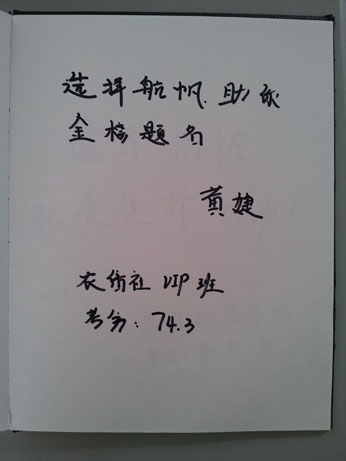 选择航帆.助我
金榜题名
黄婕
农信社 VIP 班
考分:74.3